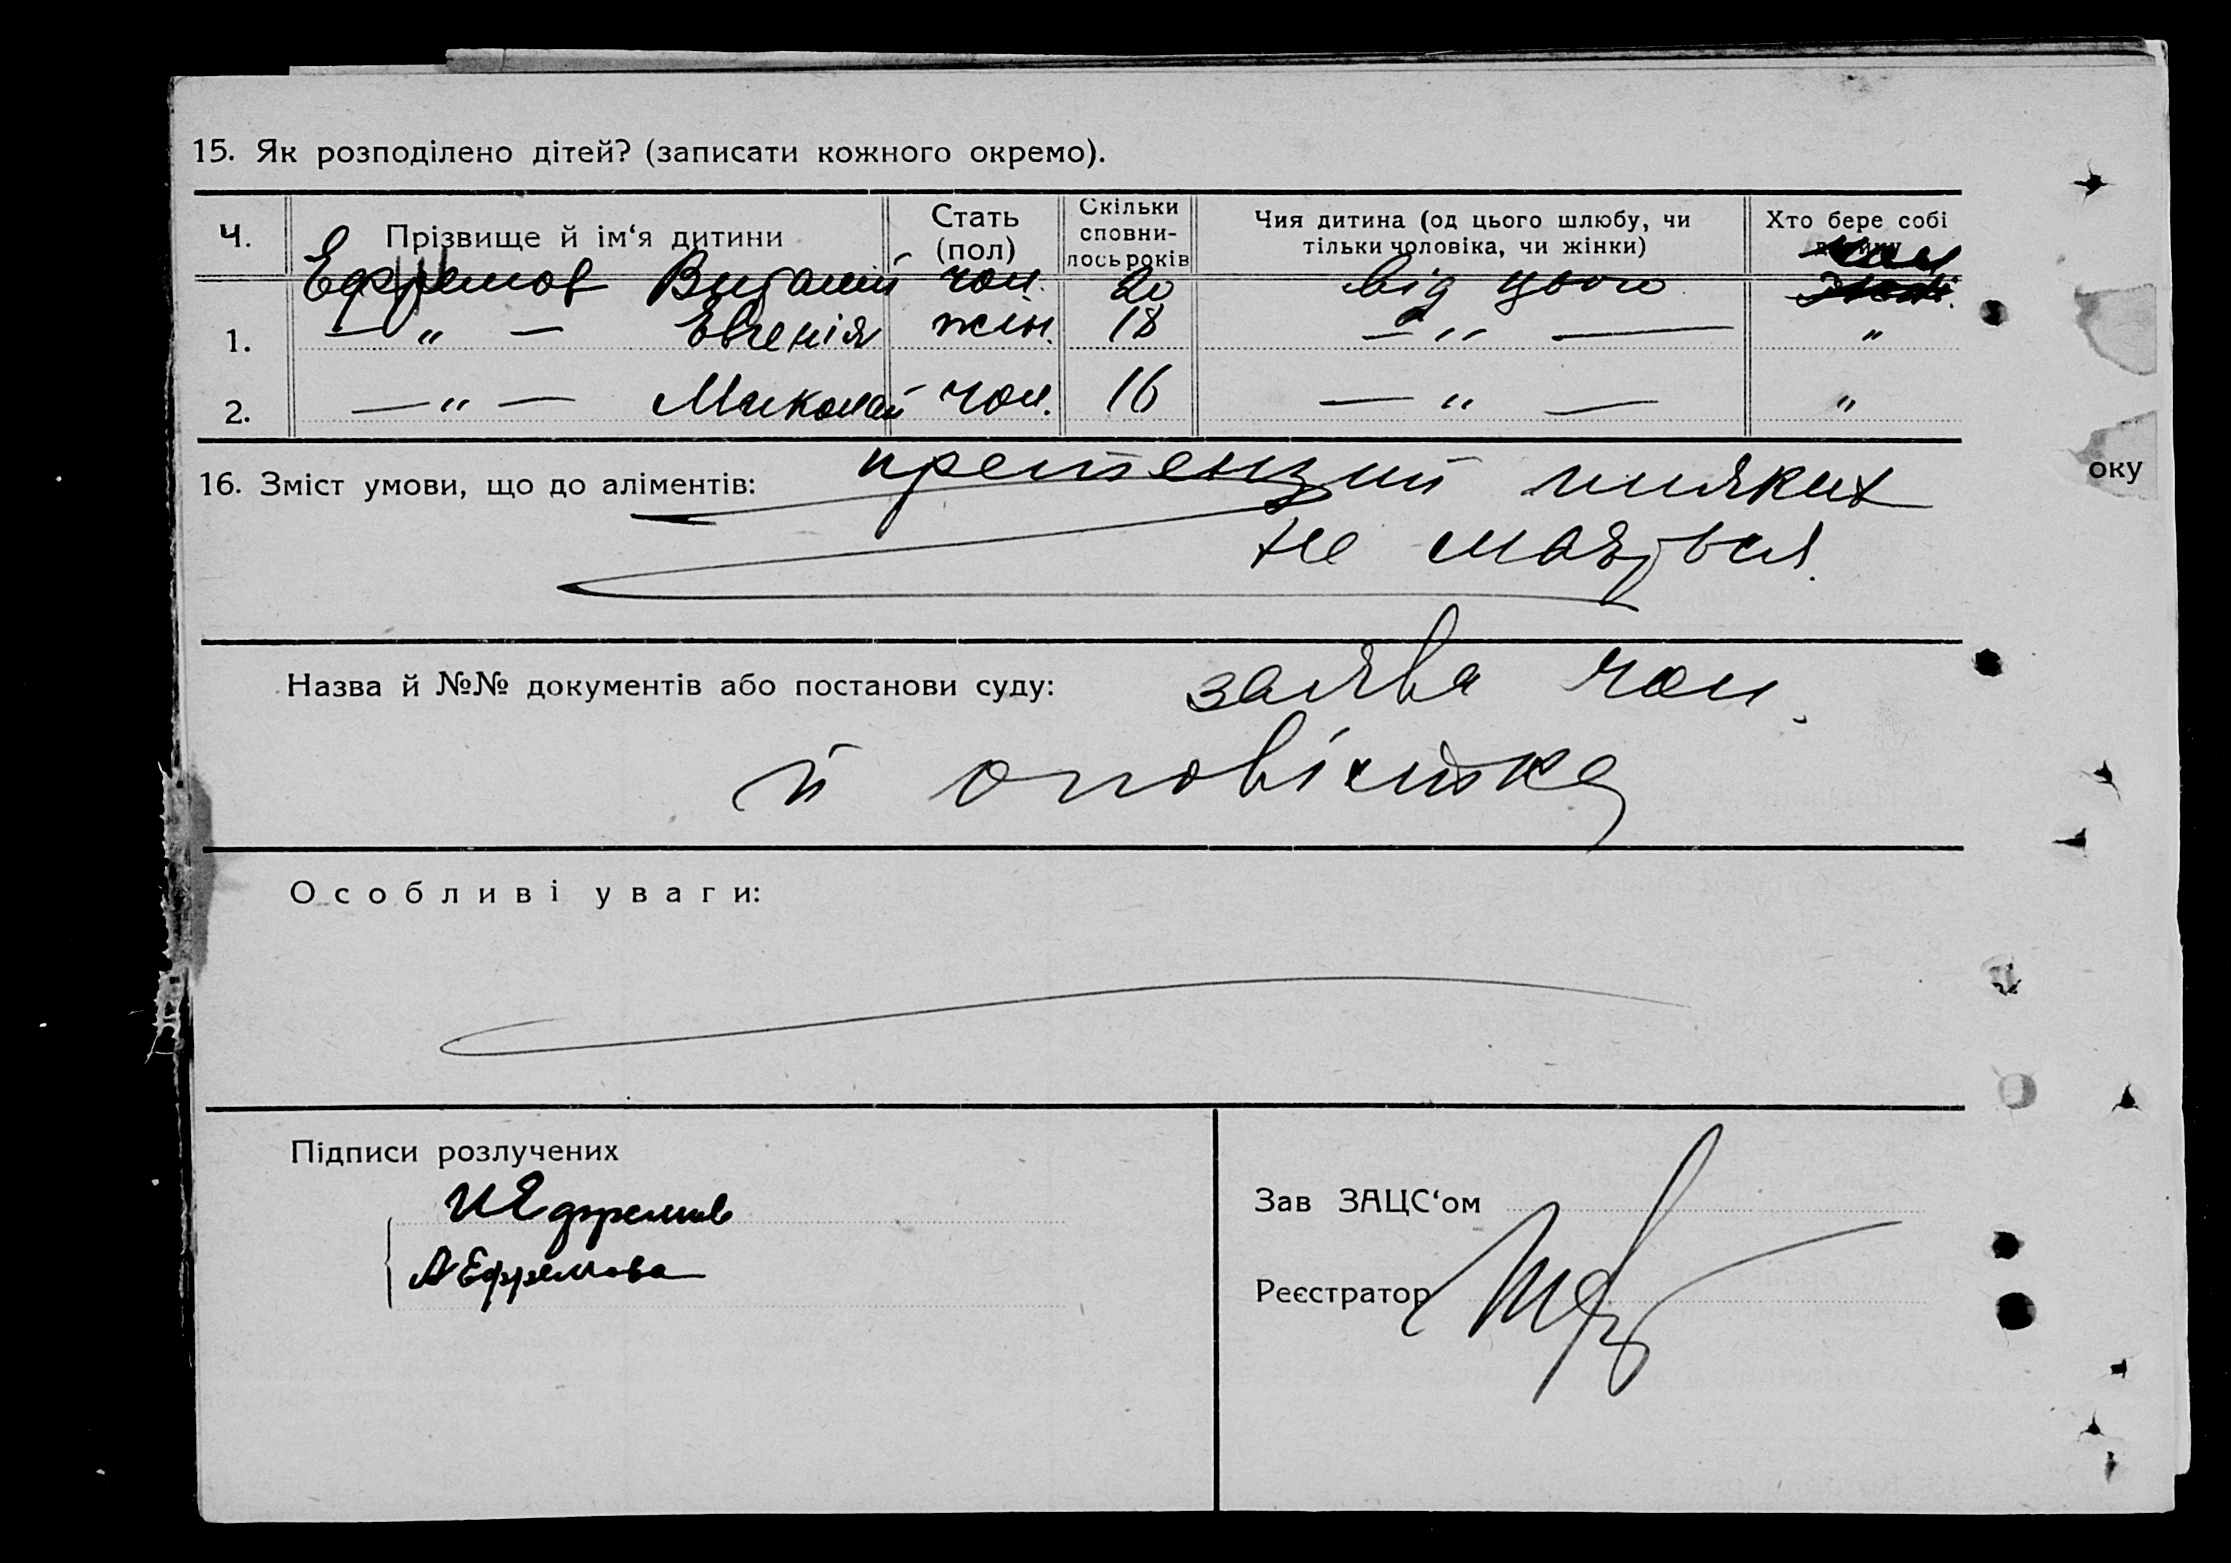 15. Як розподілено дітей? (записати кожного окремо).
Ч. Прізвище й ім‘я дитини Стать (пол) Скільки сповни-лось років Чия дитина (од цього шлюбу, чи тільки чоловіка, чи жінки) Хто бере собі дитину
Ефремов Виталий чол. 20 від цього чол
1. — „ — Евгенія жін. 18 — „ — „
2. — „ — Миколай чол. 16 — „ — „
16. Зміст умови, що до аліментів: претензий ніяких
не мається.
оку
Назва й №№ документів або постанови суду: заява чол.
й оповістка
Особливі уваги:
Підписи розлучених
И Ефремов
А Ефремова
Зав ЗАЦС‘ом
Реєстратор